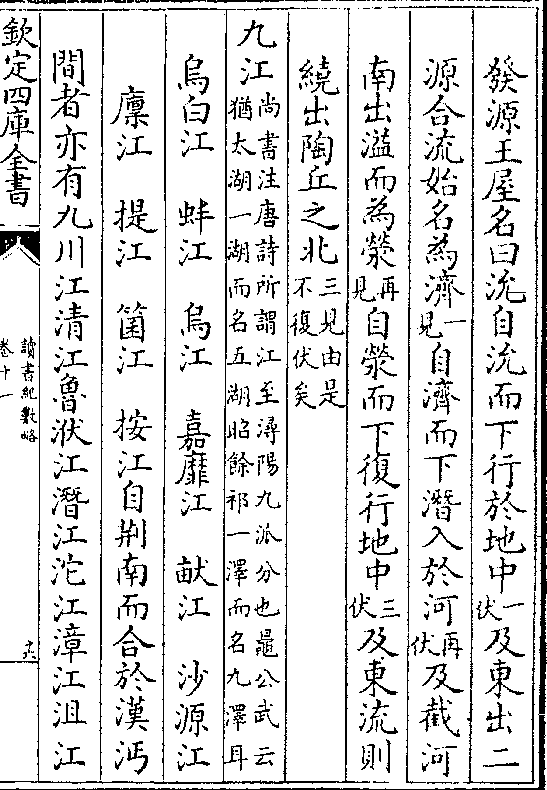 發源王屋名曰沇自沇而下行於地中一伏及東出二
源合流始名為濟一見自濟而下潛入於河再伏及截河
南出溢而為滎再見自滎而下復行地中三伏及東流則
繞出陶丘之北三見由是不復伏矣
九江尚書注唐詩所謂江至潯陽九派分也鼂公武云猶太湖一湖而名五湖昭餘祁一澤而名九澤耳
烏白江　蚌江　烏江　嘉靡江　畎江　沙源江
廩江　提江　箘江　按江自荆南而合於漢沔
間者亦有九川江清江魯洑江潛江沱江漳江沮江
欽定四庫全書
讀書紀數略
卷十一